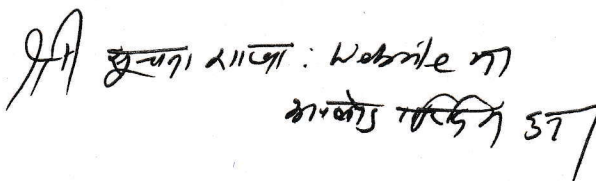 श्री सूचना शाखा : Website मा
अपलोड गरिदिनु हुन।